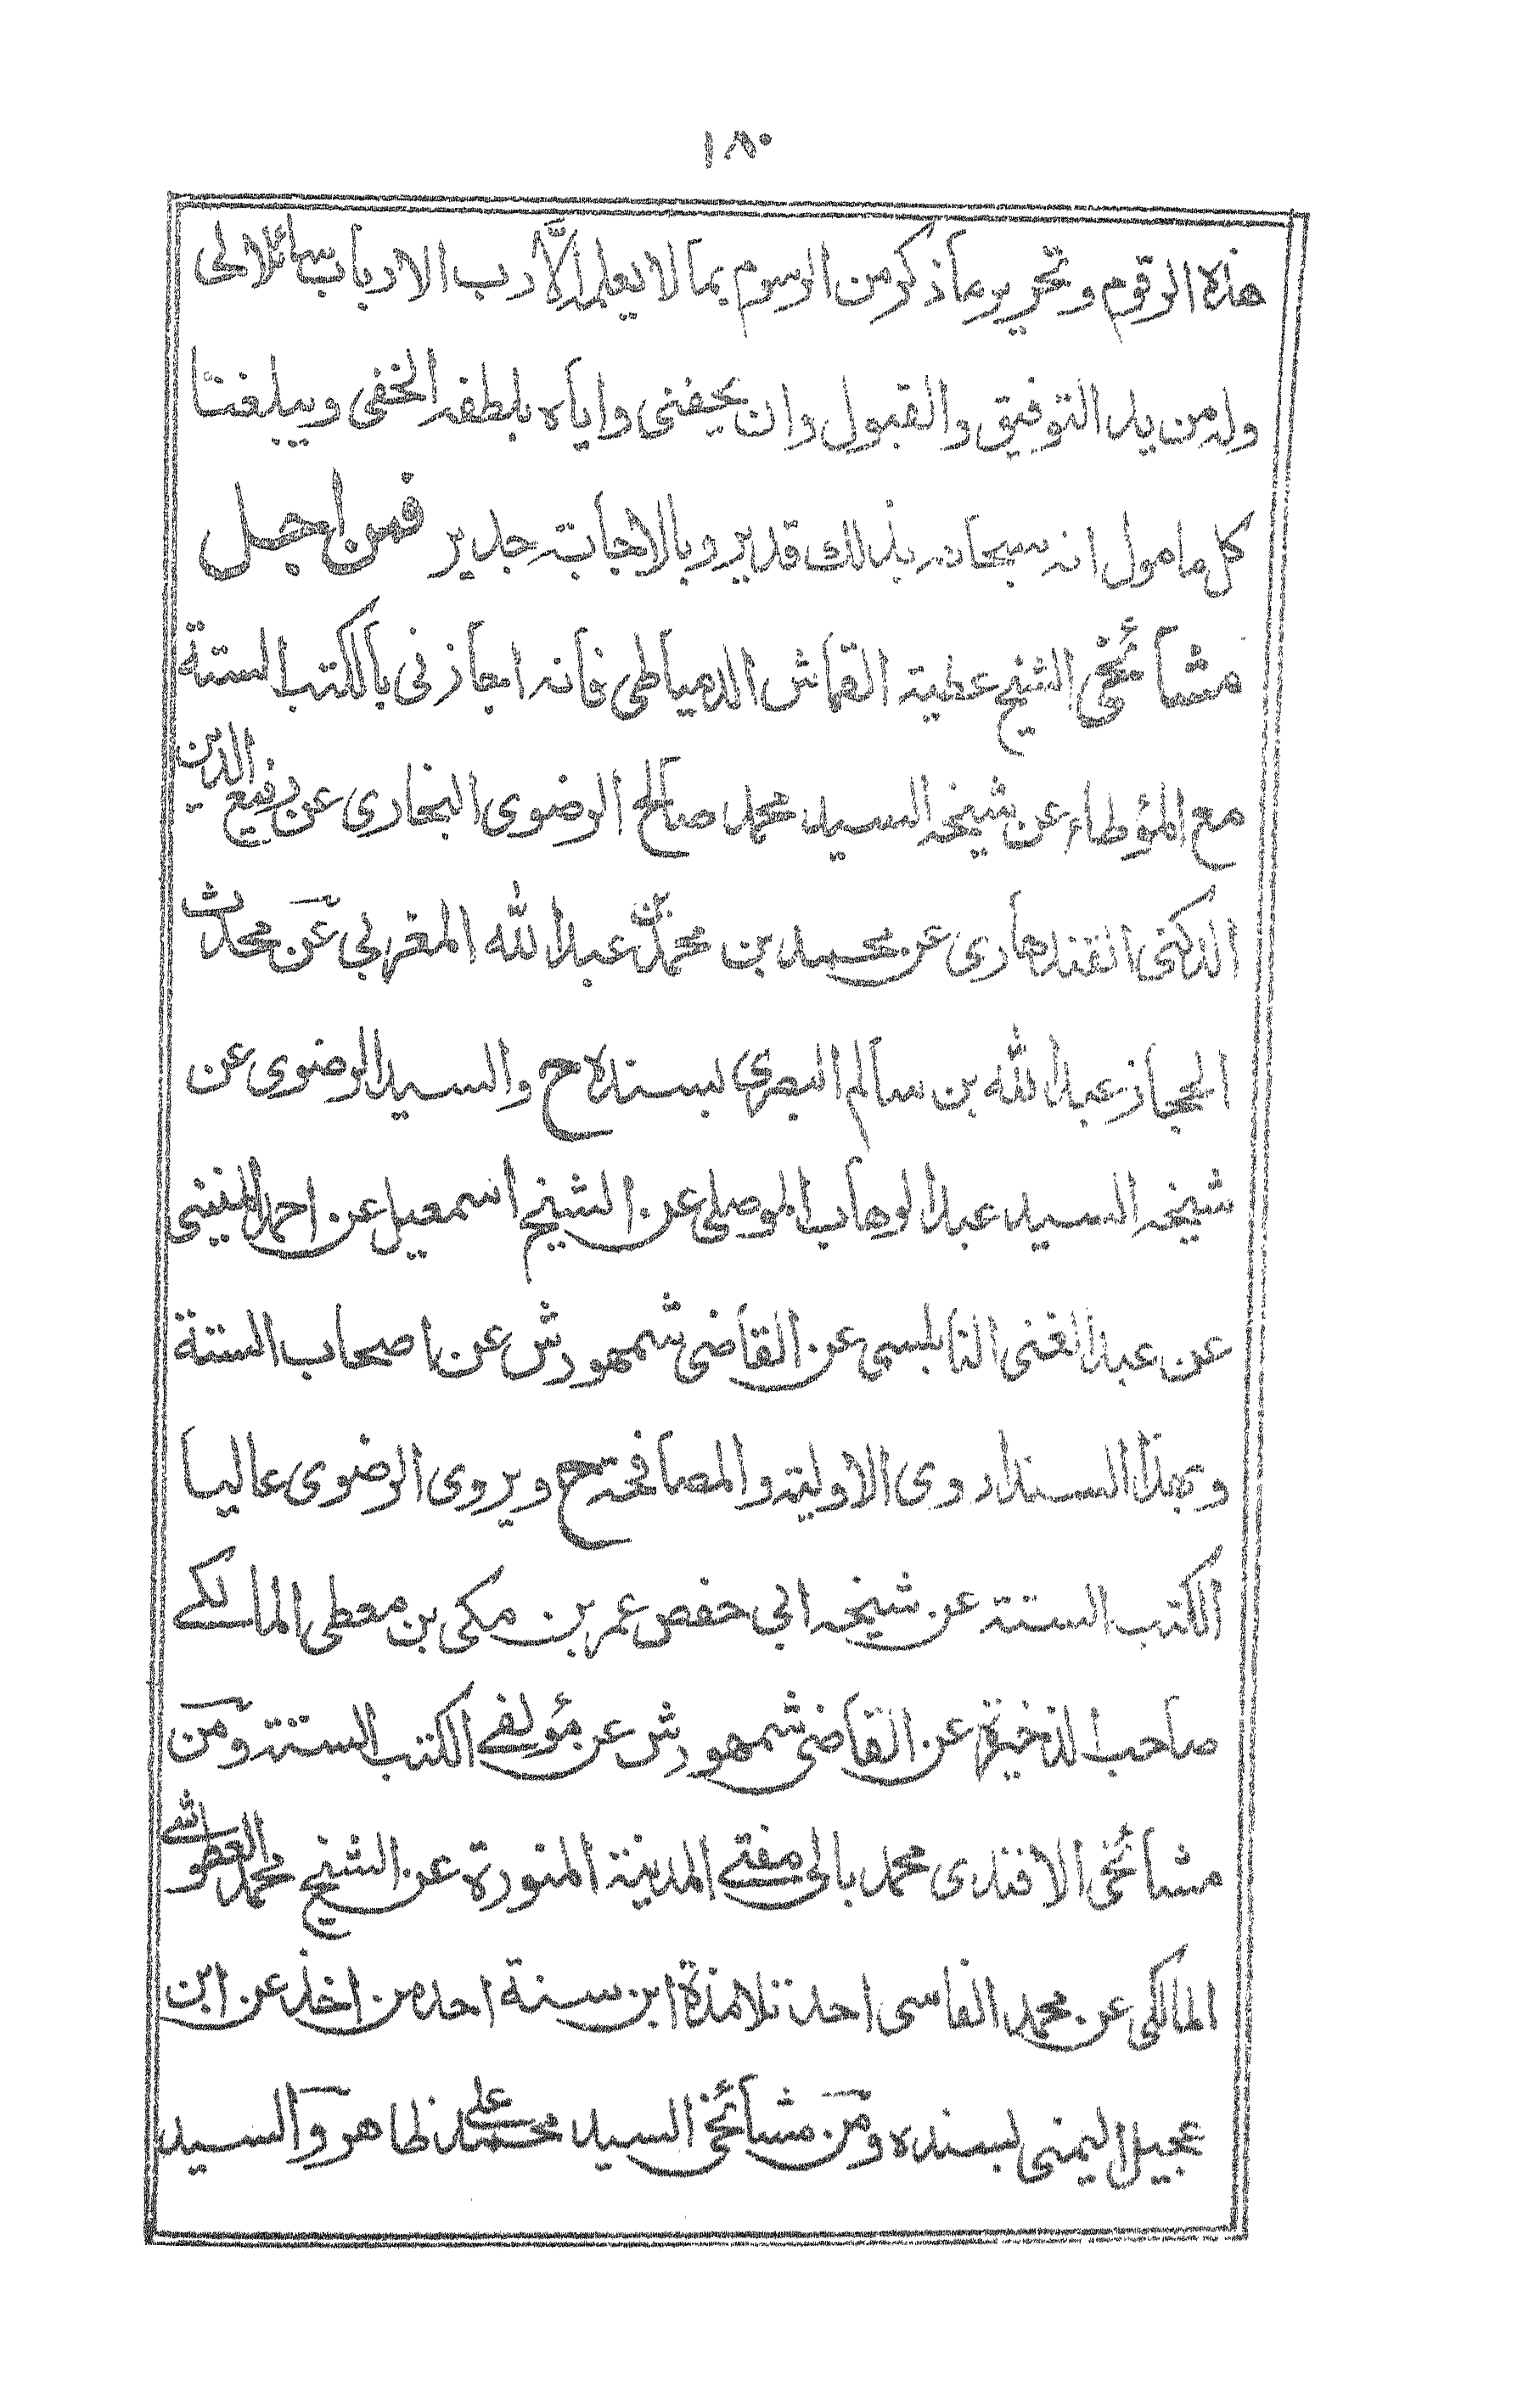 ١٨٠
هذه الرقوم وتحرير ما ذكر من الرسوم بما لا يعلمه الا رب الارباب سائلا لي
وله مزيد التوفيق والقبول وان يحفني واياه بلطفه الخفي ويبلغنا
كل مامول انه سبحانه بذلك قدير وبالاجابة جدير فمن اجل
مشائخي الشيخ عطية القماش الدمياطي فانه اجازني بالكتب الستة
مع المؤطاء عن شيخه السيد محمد صالح الرضوى البخارى عن رفيع الدين
الدكني القندهارى عن محمد بن محمد بن عبد الله المغربي عن محدث
الحجاز عبد الله بن سالم البصرى بسنده ح والسيد الرضوى عن
شيخه السيد عبد الوهاب الموصلى عن الشيخ اسمعيل عن احمد المنيني
عن عبد الغنى النابلسى عن القاضى شمهورش عن اصحاب الستة
وبهذا السند اروى الاولية والمصافحة ح ويروى الرضوى عاليا
الكتب الستة عن شيخه ابي حفص عمر بن مكى بن معطى المالكے
صاحب الذخيرة عن القاضى شمهورش عن مؤلفے الكتب الستة ومن
مشائخى الافندى محمد بالى مفتے المدينة المنورة عن الشيخ محمد العطوشے
المالكى عن محمد الفاسى احد تلامذة ابن سنة احد من اخذ عن ابن
عجيل اليمنى بسنده ومن مشائخى السيد محمد على ظاهر والسيد